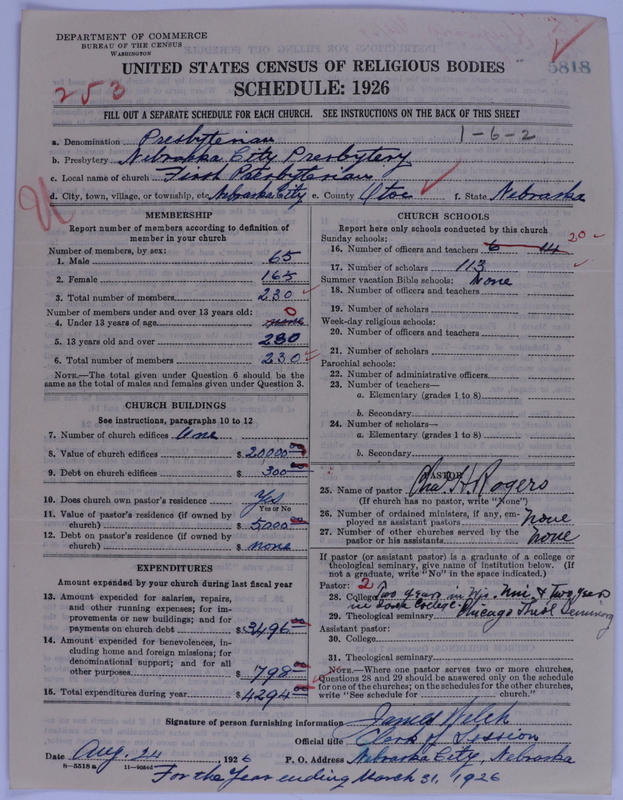 DEPARTMENT OF COMMERCE
BUREAU OF THE CENSUS
WASHINGTON
UNITED STATES CENSUS OF RELIGIOUS BODIES
5818
SCHEDULE: 1926
253
FILL OUT A SEPARATE SCHEDULE FOR EACH CHURCH. SEE INSTRUCTIONS ON THE BACK OF THIS SHEET
1-6-2
a. Denomination Presbyterian
b. Presbytery Nebraska City Presbytery
c. Local name of church First Presbyterian
d. City, town, village, or township, etc Nebraska City e. County Otoe f. State Nebraska
MEMBERSHIP
Report number of members according to definition of member in your church
Number of members, by sex:
1. Male 65
2. Female 165
3. Total number of members 230
Number of members under and over 13 years old:
4. Under 13 years of age none 0
5. 13 years old and over 230
6. Total number of members 230
NOTE.—The total given under Question 6 should be the same as the total of males and females given under Question 3.
CHURCH BUILDINGS
See instructions, paragraphs 10 to 12
7. Number of church edifices One
8. Value of church edifices $ 20000.00
9. Debt on church edifices $ 300.00
10. Does church own pastor's residence Yes
Yes or No
11. Value of pastor's residence (if owned by church) $ 5,000.00
12. Debt on pastor's residence (if owned by church) $ none
EXPENDITURES
Amount expended by your church during last fiscal year
13. Amount expended for salaries, repairs, and other running expenses; for improvements or new buildings; and for payments on church debt $ 3496.00
14. Amount expended for benevolences, including home and foreign missions; for denominational support; and for all other purposes $ 798.00
15. Total expenditures during year $ 4294.00
CHURCH SCHOOLS
Report here only schools conducted by this church
Sunday schools:
16. Number of officers and teachers 6 14 20
17. Number of scholars 113
Summer vacation Bible schools: None
18. Number of officers and teachers
19. Number of scholars
Week-day religious schools:
20. Number of officers and teachers
21. Number of scholars
Parochial schools:
22. Number of administrative officers
23. Number of teachers—
a. Elementary (grades 1 to 8)
b. Secondary
24. Number of scholars—
a. Elementary (grades 1 to 8)
b. Secondary
PASTOR
25. Name of pastor Chas. H. Rogers
(If church has no pastor, write "None")
26. Number of ordained ministers, if any, employed as assistant pastors none
27. Number of other churches served by the pastor or his assistants none
If pastor (or assistant pastor) is a graduate of a college or theological seminary, give name of institution below. (If not a graduate, write "No" in the space indicated.)
Pastor: 2
28. College Two years in Wis. Uni & Two years in College.
29. Theological seminary Chicago Theol Seminary
Assistant pastor:
30. College
31. Theological seminary
NOTE.—Where one pastor serves two or more churches, Questions 28 and 29 should be answered only on the schedule for one of the churches; on the schedules for the other churches, write "See schedule for church."
Signature of person furnishing information James Welch
Official title Clerk of Session
Date Aug. 24, 1926 P. O. Address Nebraska City, Nebraska
8-5518a
For the Year ending March 31, 1926